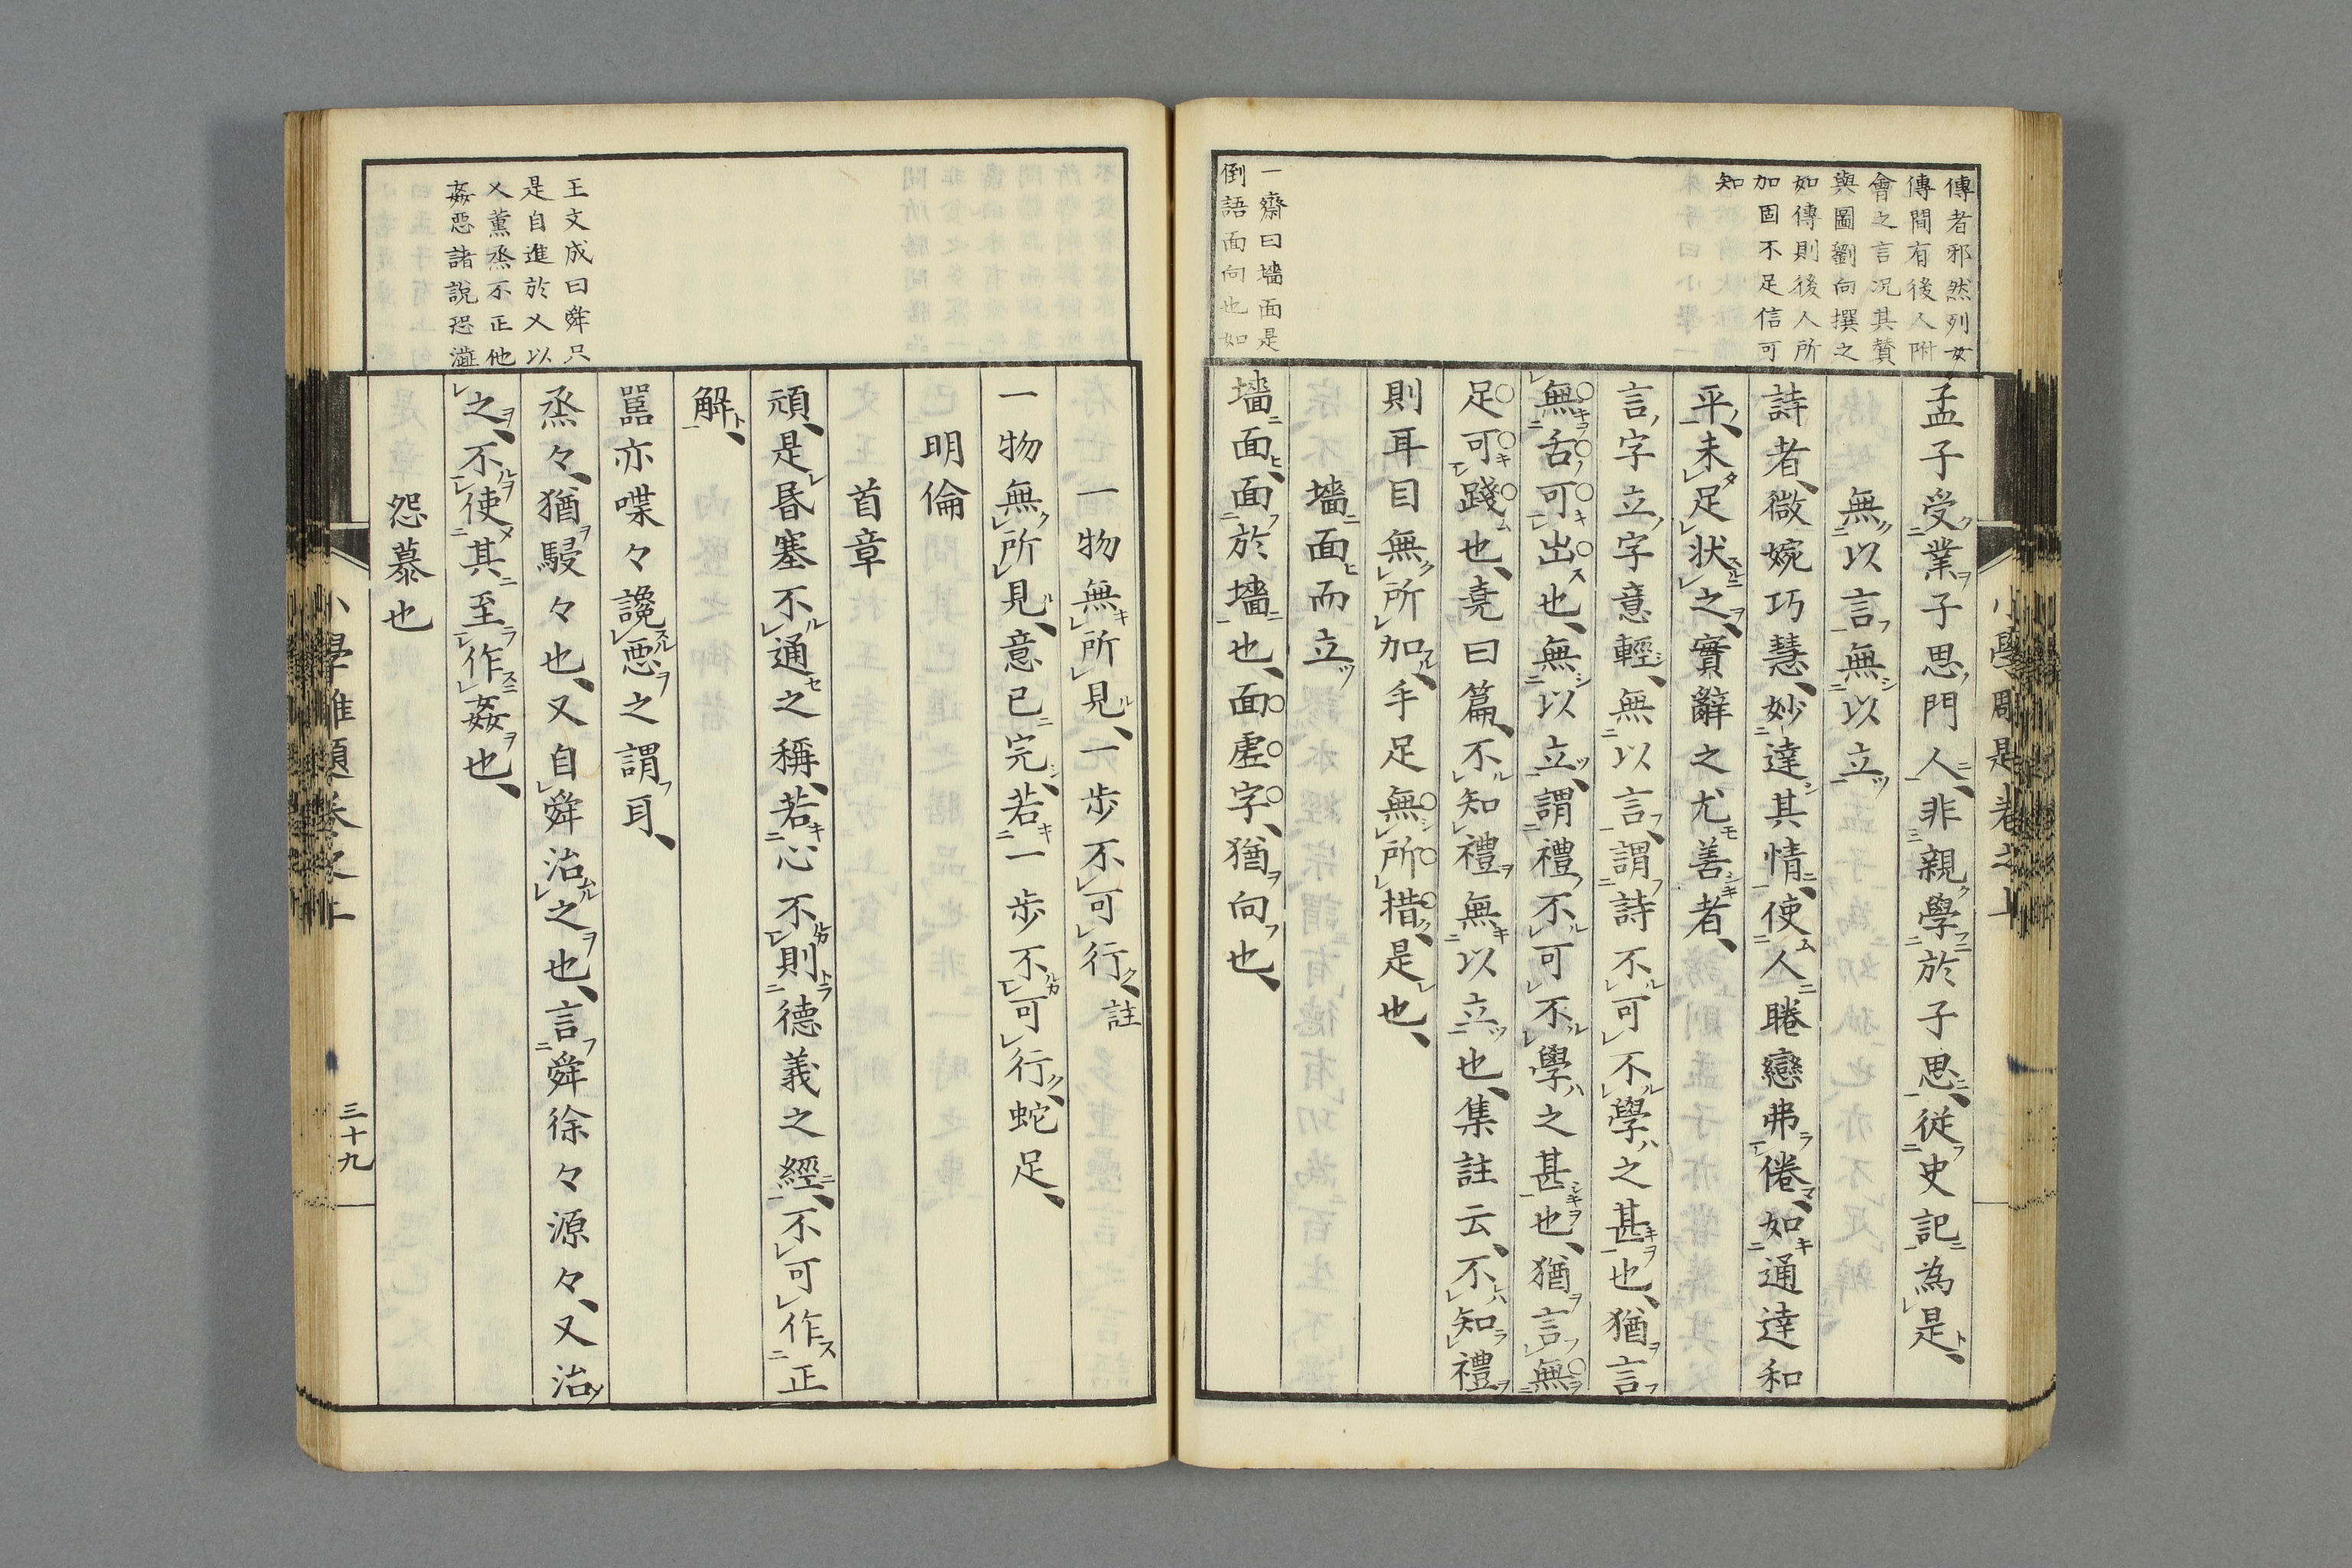 傳者邪然列女
傳間有後人附
會之言况其賛
與圖劉向撰之
如傳則後人所
加固不足信可
知
一齋曰墻面是
倒語面向也如
孟子受業子思門人非親學於子思從史記為是
無以言無以立
詩者微婉巧慧妙達其情使人睠戀弗倦如通達和
平未足狀之實辭之尤善者
言字立字意輕無以言謂詩不可不學之甚也猶言
無舌可出也無以立謂禮不可不學之甚也猶言無
足可踐也堯曰篇不知禮無以立也集註云不知禮
則耳目無所加手足無所措是也
墻面而立
墻面面於墻也面虛字猶向也
王文成曰舜只
是自進於乂以
乂薰烝不正他
姦惡諸說恐
一物無所見一歩不可行註
一物無所見意已完若一歩不可行蛇足
明倫
首章
頑是昏塞不通之稱若心不則德義之經不可作正
解
嚚亦喋々讒惡之謂耳
烝々猶駸々也又自舜治之也言舜徐々源々又治
之不使其至作姦也
怨慕也
三十九